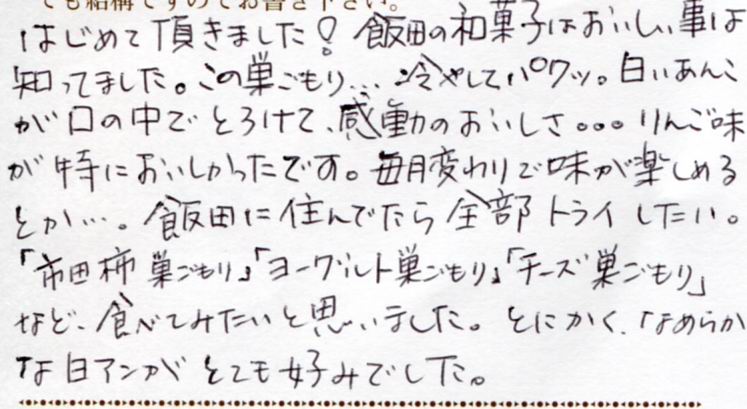 でも結構ですのでお書き下さい。
はじめて頂きました！飯田の和菓子はおいしい事は
知ってました。この巣ごもり…冷やしてパクッ。白いあんこ
が口の中でとろけて、感動のおいしさ。。。りんご味
が特においしかったです。毎月変わりで味が楽しめる
とか…。飯田に住んでたら全部トライしたい。
「市田柿巣ごもり」「ヨーグルト巣ごもり」「チーズ巣ごもり」
など、食べてみたいと思いました。とにかく、なめらか
な白アンがとても好みでした。